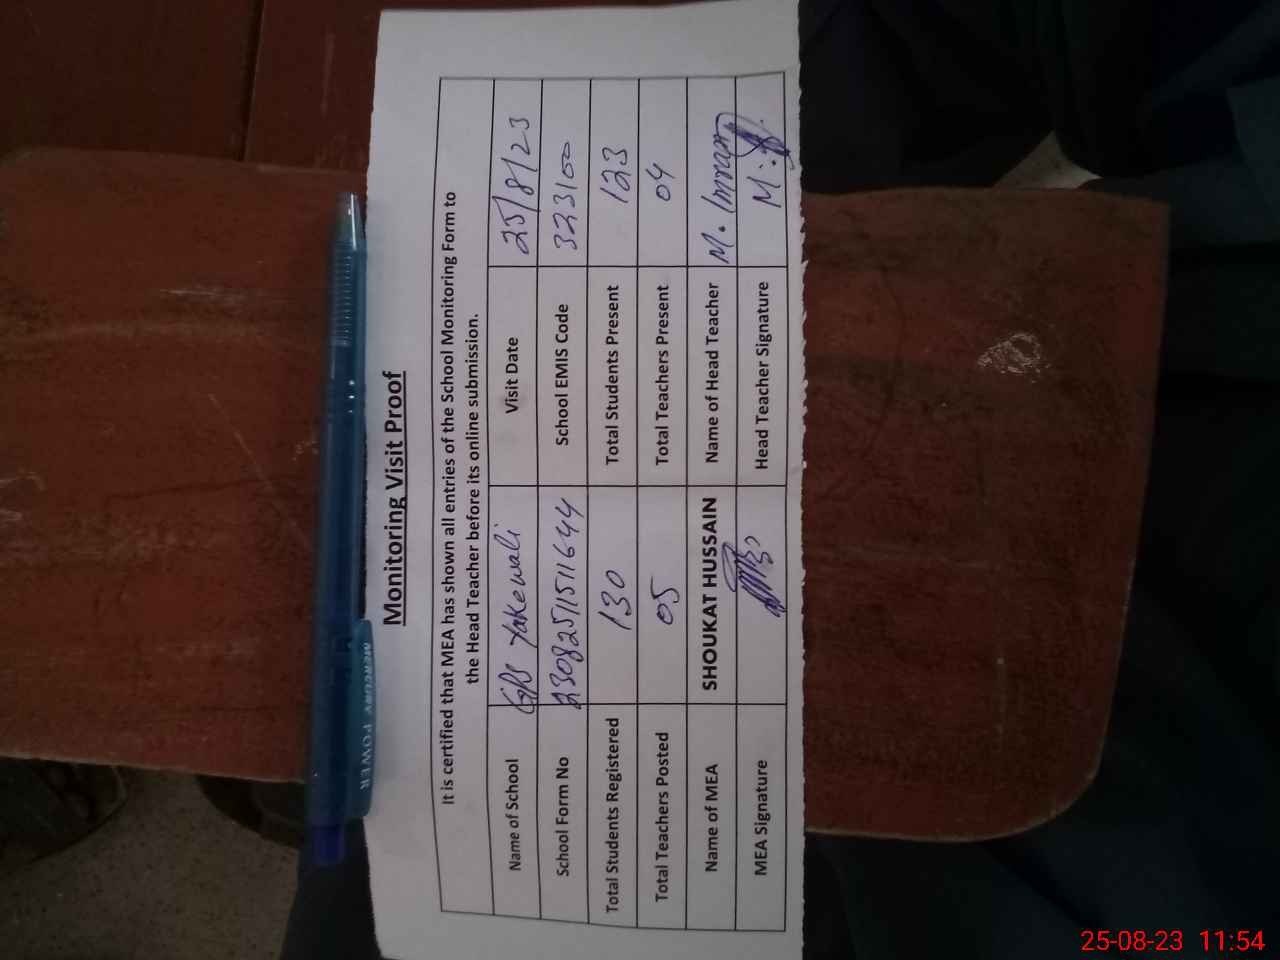 Monitoring Visit Proof
It is certified that MEA has shown all entries of the School Monitoring Form to
the Head Teacher before its online submission.
Name of School GPS Yakewali Visit Date 25/8/23
School Form No 23082511511644 School EMIS Code 323100
Total Students Registered 130 Total Students Present 123
Total Teachers Posted 05 Total Teachers Present 04
Name of MEA SHOUKAT HUSSAIN Name of Head Teacher M. Imran
MEA Signature Head Teacher Signature
MERCURY POWER
25-08-23 11:54